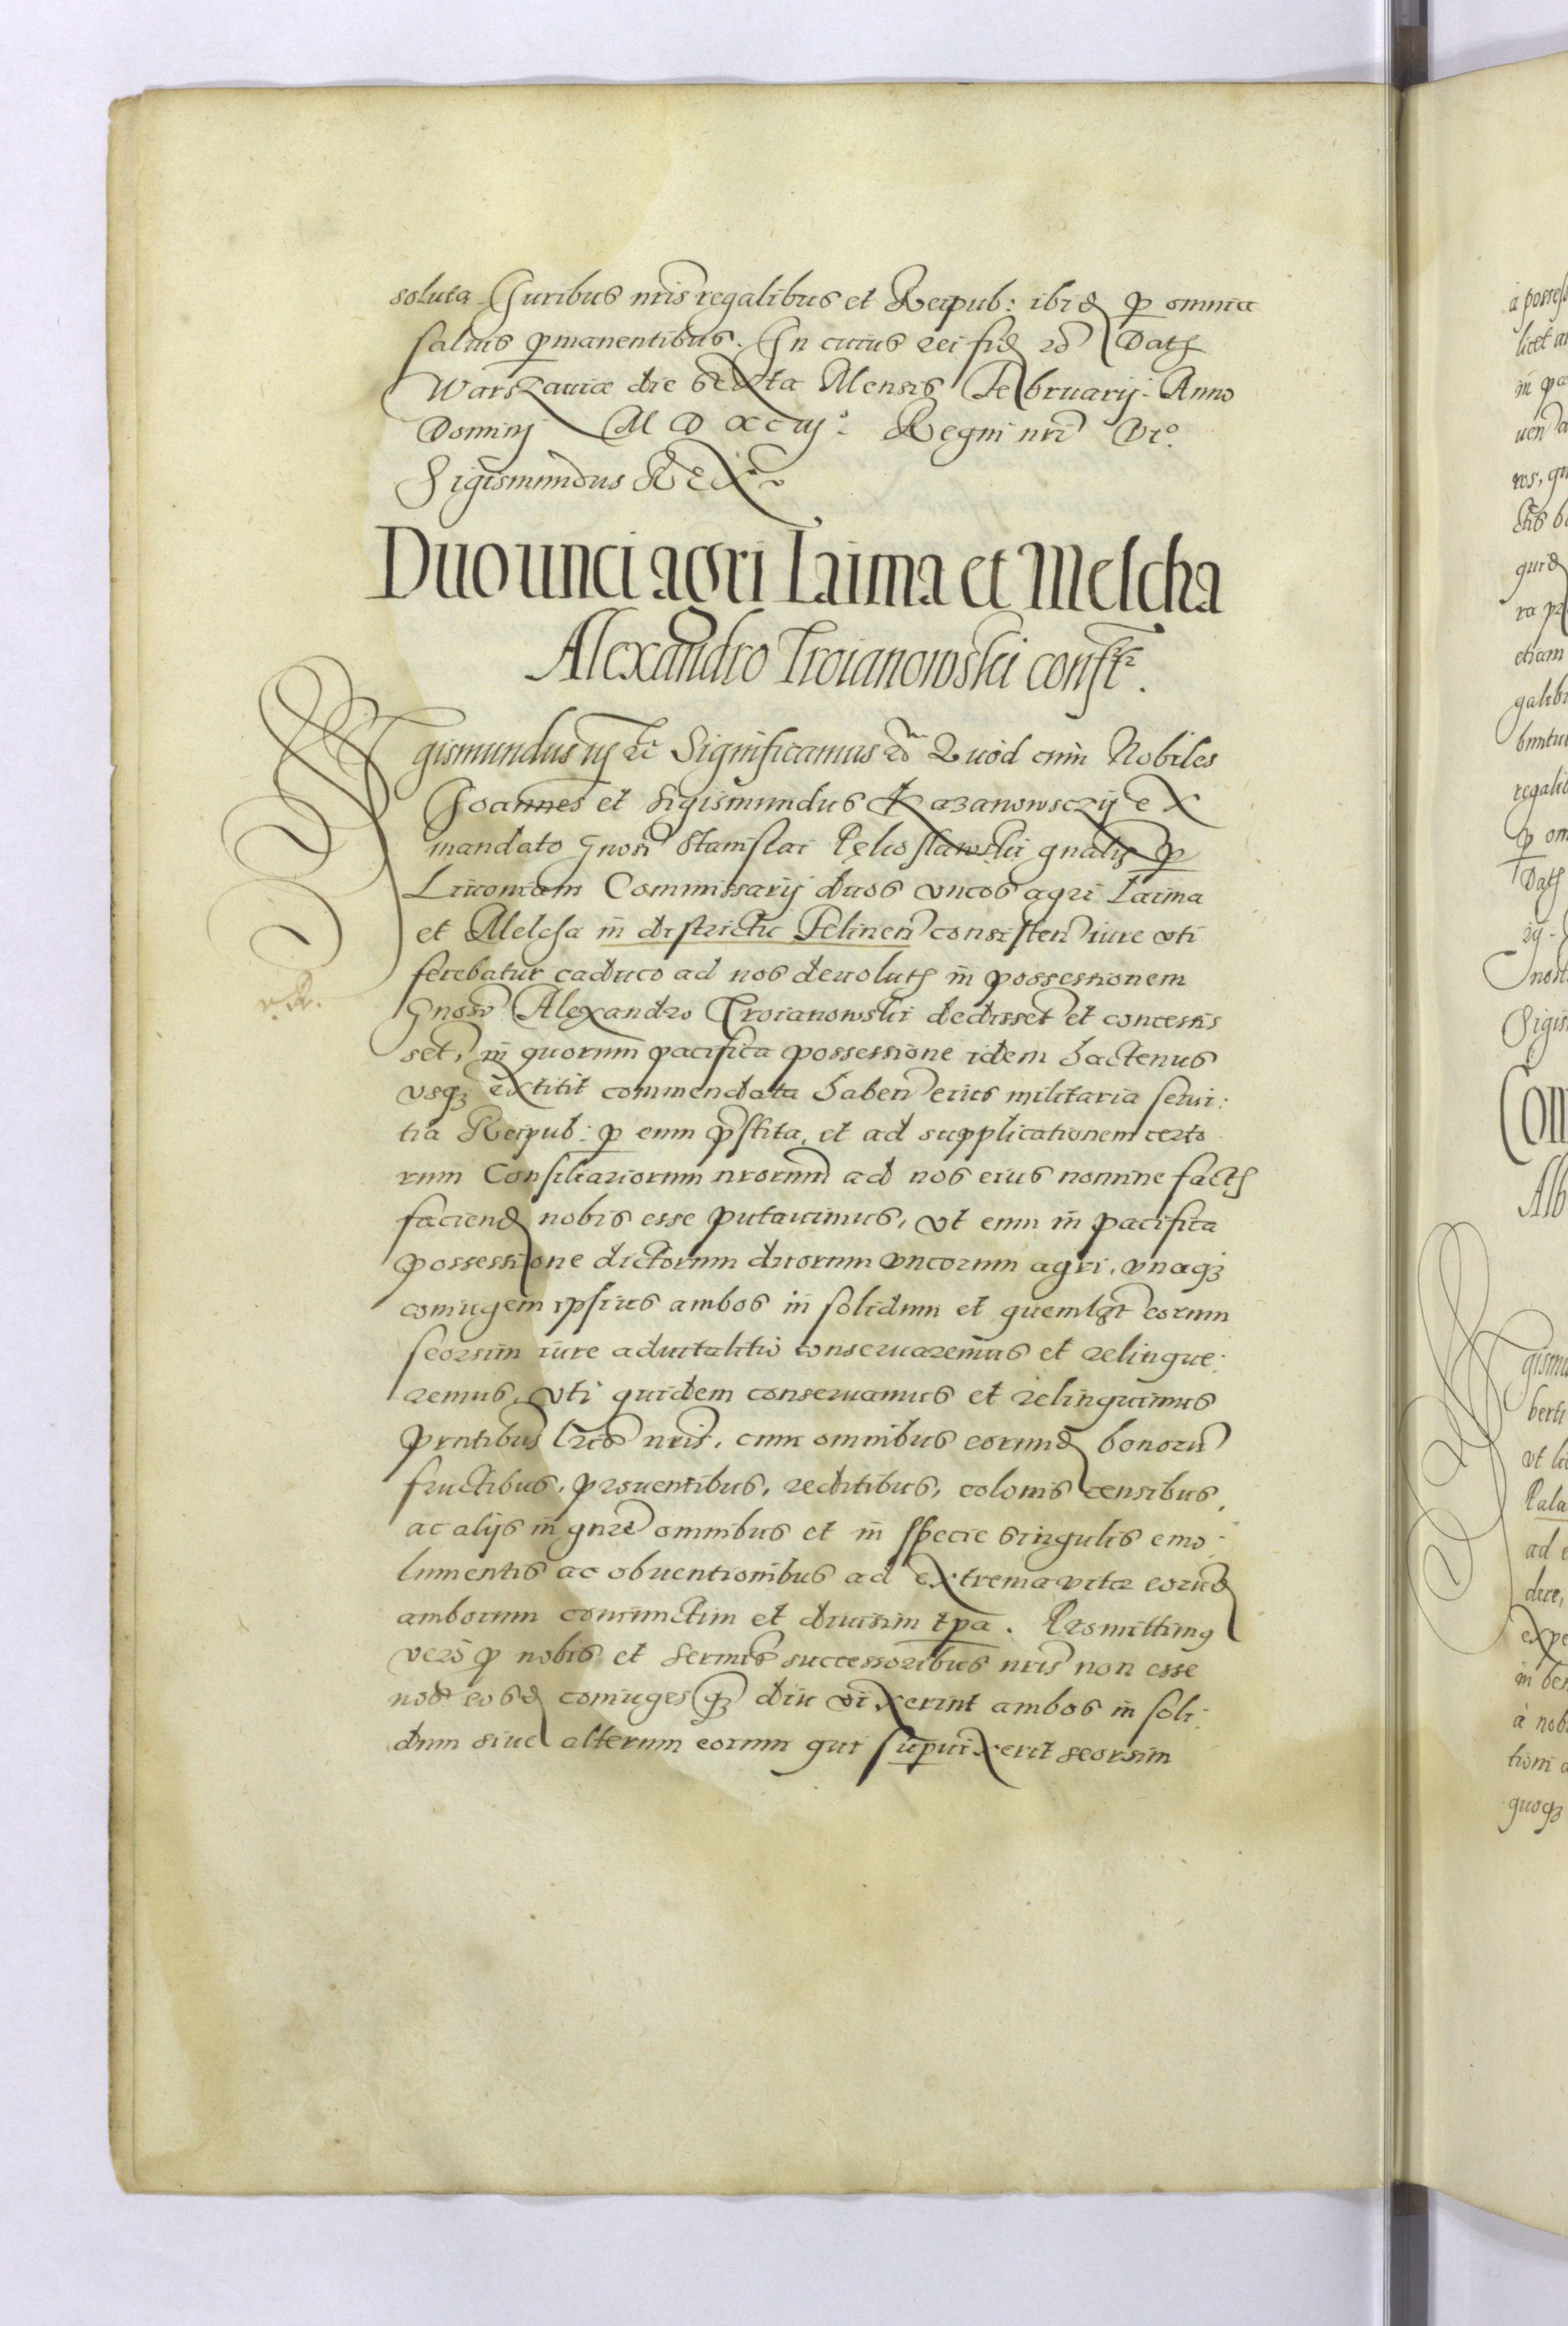 soluta Iuribus nris regalibus et Reipub: ibid p omnia
saluis pmanentibus. In cuius rei fid &c Dat
Warszauiæ die sexta Mensis Februarij. Anno
Dominj M D XC iij° Regni nri vi°
Sigismundus Rex
Duo unci agri Laima et Melcha
Alexandro Troianowski confr.
Sigismundus iij &c Significamus &c Quod cum Nobiles
Joannes et Sigismundus Kazanowsczij ex
mandato Gnosi Stanislai Pękosławski gnalis p
Liuoniam Commissarij duos vncos agri Laima
et Melcha in districtu Felinen consisten iure vti
ferebatur caduco ad nos deuolut in possessionem
Gnoso Alexandro Troianowski dedisset et concessis
set, in quorum pacifica possessione idem hactenus
vsq extitit commendata haben eius militaria serui:
tia Reipub: p eum pstita, et ad supplicationem certo
rum Consiliariorum nrorum ad nos eius nomine fact
faciend nobis esse putauimus, vt eum in pacifica
possessione dictorum duorum vncorum agri, vnaq
coniugem ipsius ambos in solidum et quemlibt eorum
seorsim iure aduitalitio conseruaremus et relinque:
remus, vti quidem conseruamus et relinquimus
pntibus lris nris, cum omnibus eorund bonoru
fructibus, prouentibus, reditibus, colonis censibus,
ac alijs in gnre omnibus et in specie singulis emo:
lumentis ac obuentionibus ad extrema vitæ eorund
amborum coniunctim et diuisim tpa. Promittimus
vero p nobis et sermis successoribus nris non esse
nos eosd coniuges q diu vixerint ambos in soli:
dum siue alterum eorum qui supuixerit seorsim